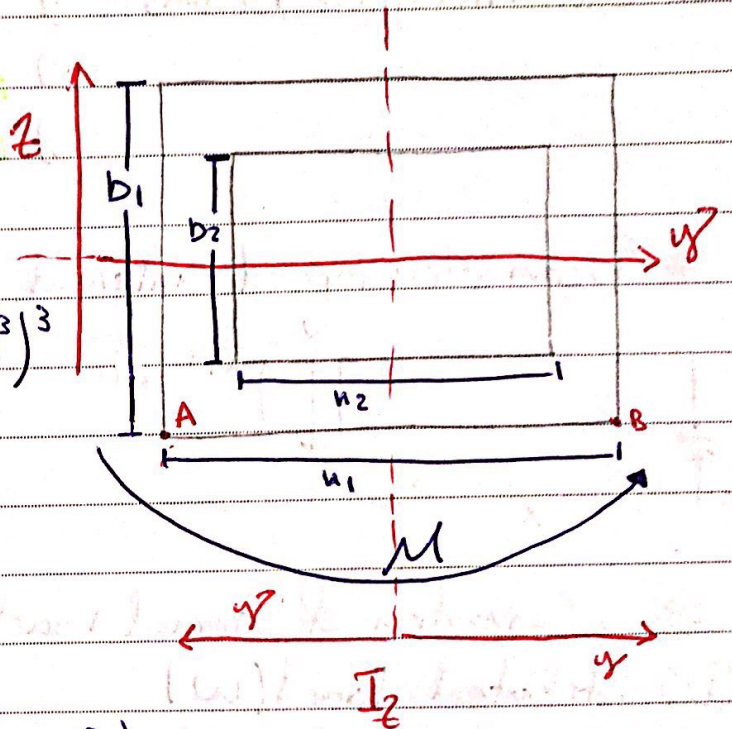 z
b1
b2
y
3)3
h2
A
B
h1
M
y
y
Iz